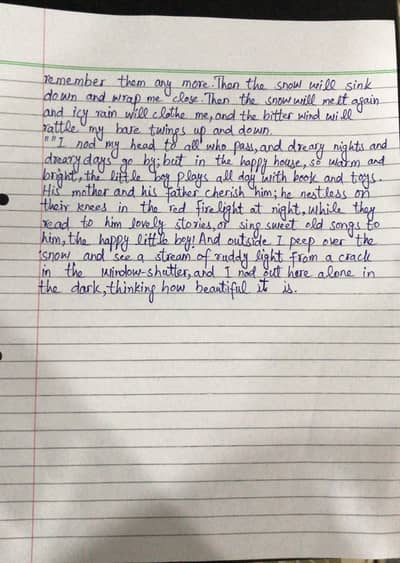 remember them any more. Then the snow will sink
down and wrap me close. Then the snow will melt again
and icy rain will clothe me, and the bitter wind will
rattle my bare twings up and down.
""I nod my head to all who pass, and dreary nights and
dreary days go by; but in the happy house, so warm and
bright, the little boy plays all day with book and toys.
His mother and his father cherish him; he nestless on
their knees in the red firelight at night, while they
read to him lovely stories, or sing sweet old songs to
him, the happy little boy! And outside I peep over the
snow and see a stream of ruddy light from a crack
in the window-shutter, and I nod out here alone in
the dark, thinking how beautiful it is.